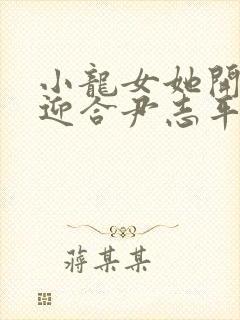 小龍女她開
迎合尹志平
蔣某某